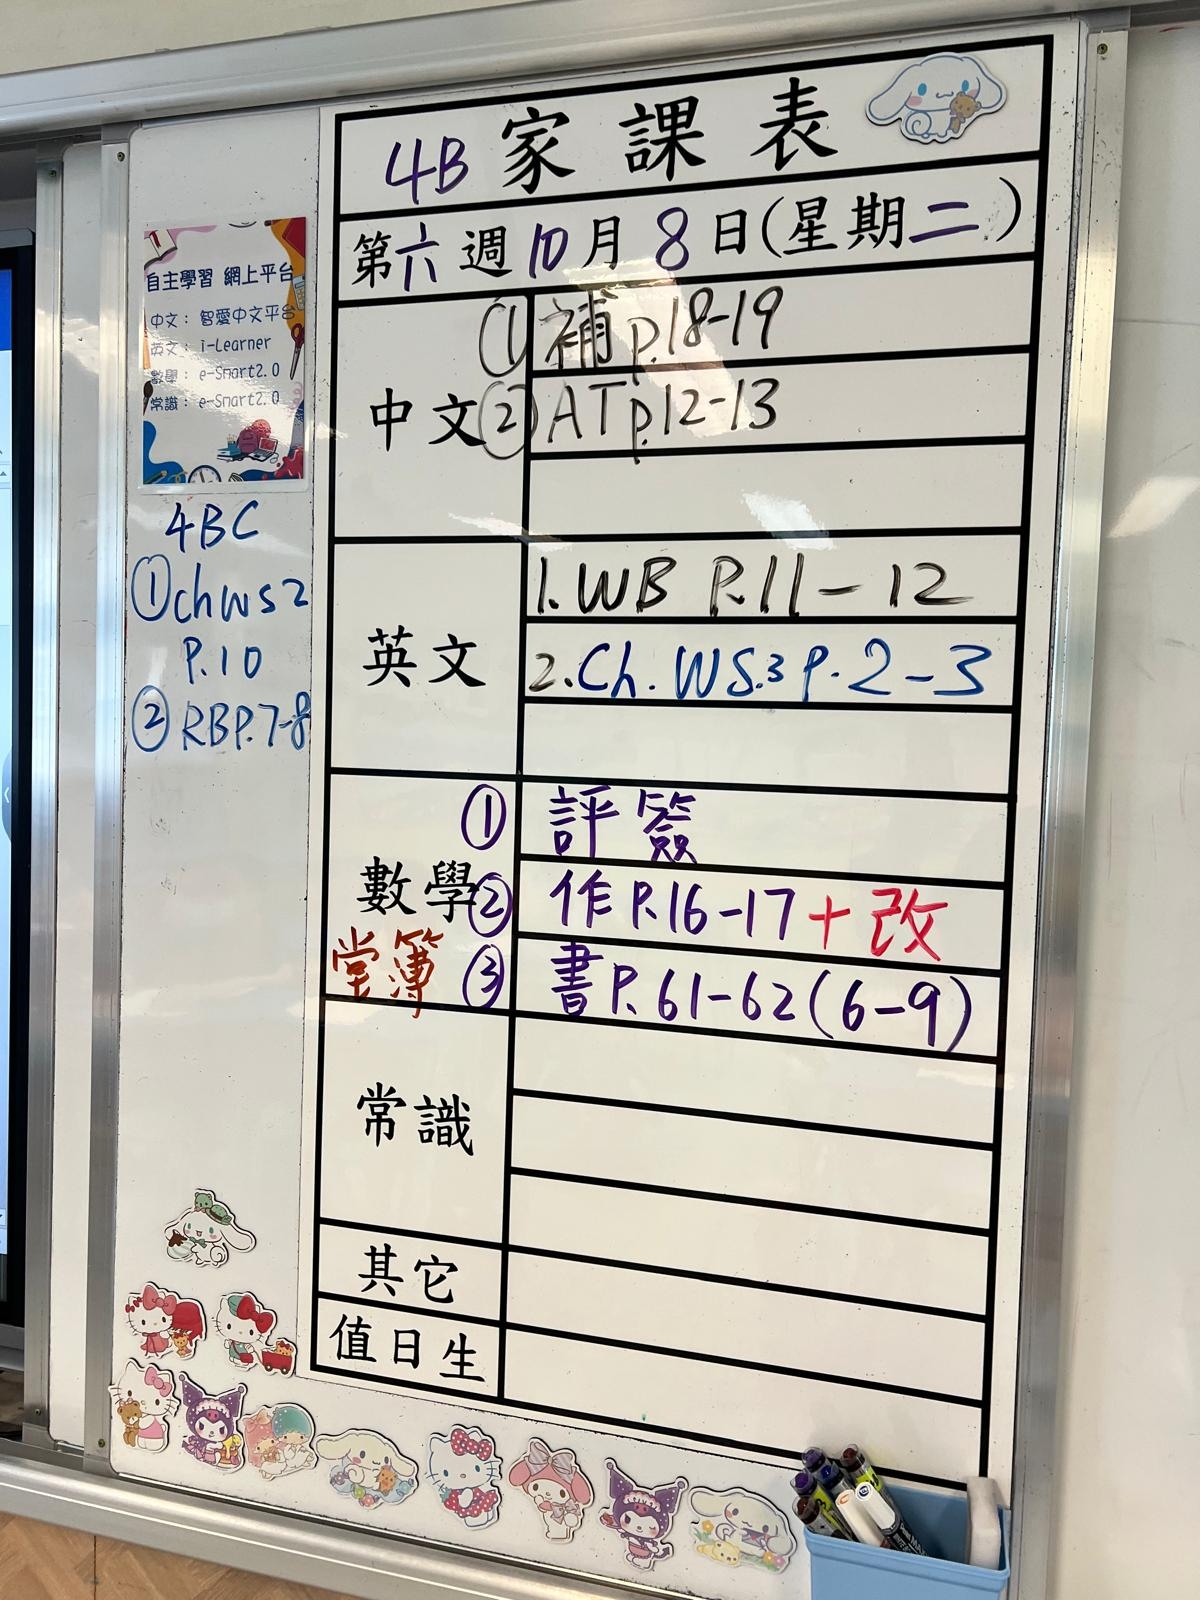 4B 家課表
第六週10月8日(星期二)
自主學習 網上平台
中文： 智愛中文平台
英文： i-Learner
數學： e-Smart2.0
常識： e-Smart2.0
4BC
① ch WS 2
P.10
② RB P.7-8
中文
① 補 p.18-19
② AT p.12-13
英文
1. WB P.11-12
2. Ch. WS.3 P.2-3
數學
堂簿
① 評簽
② 作 P.16-17+改
③ 書 P.61-62(6-9)
常識
其它
值日生